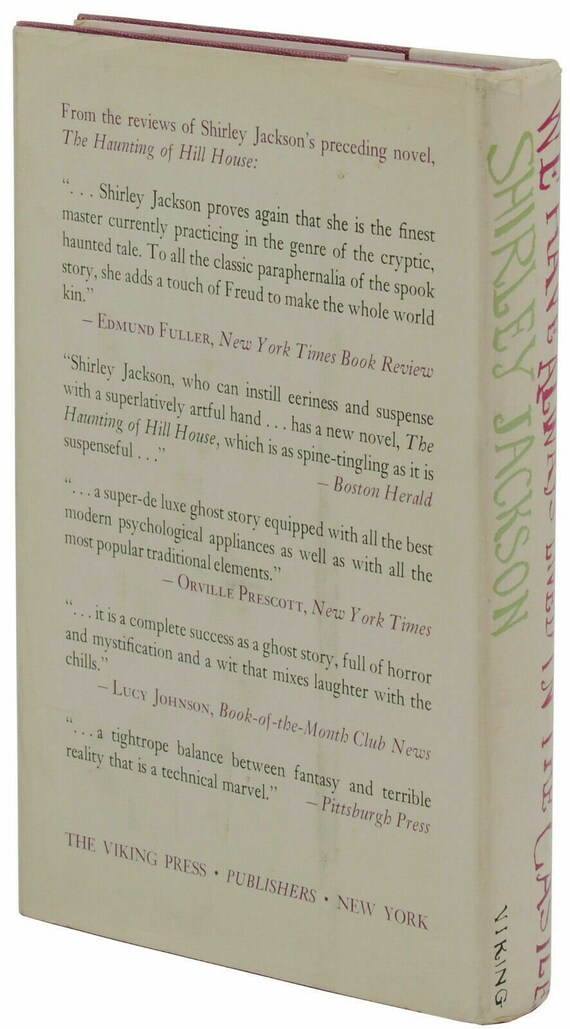 From the reviews of Shirley Jackson's preceding novel,
The Haunting of Hill House:
“. . . Shirley Jackson proves again that she is the finest
master currently practicing in the genre of the cryptic,
haunted tale. To all the classic paraphernalia of the spook
story, she adds a touch of Freud to make the whole world
kin.”
– EDMUND FULLER, New York Times Book Review
“Shirley Jackson, who can instill eeriness and suspense
with a superlatively artful hand . . . has a new novel, The
Haunting of Hill House, which is as spine-tingling as it is
suspenseful . . .”
– Boston Herald
“. . . a super-de luxe ghost story equipped with all the best
modern psychological appliances as well as with all the
most popular traditional elements.”
– ORVILLE PRESCOTT, New York Times
“. . . it is a complete success as a ghost story, full of horror
and mystification and a wit that mixes laughter with the
chills.”
– LUCY JOHNSON, Book-of-the-Month Club News
“. . . a tightrope balance between fantasy and terrible
reality that is a technical marvel.”
– Pittsburgh Press
THE VIKING PRESS • PUBLISHERS • NEW YORK
WE HAVE ALWAYS LIVED IN THE CASTLE
SHIRLEY JACKSON
VIKING